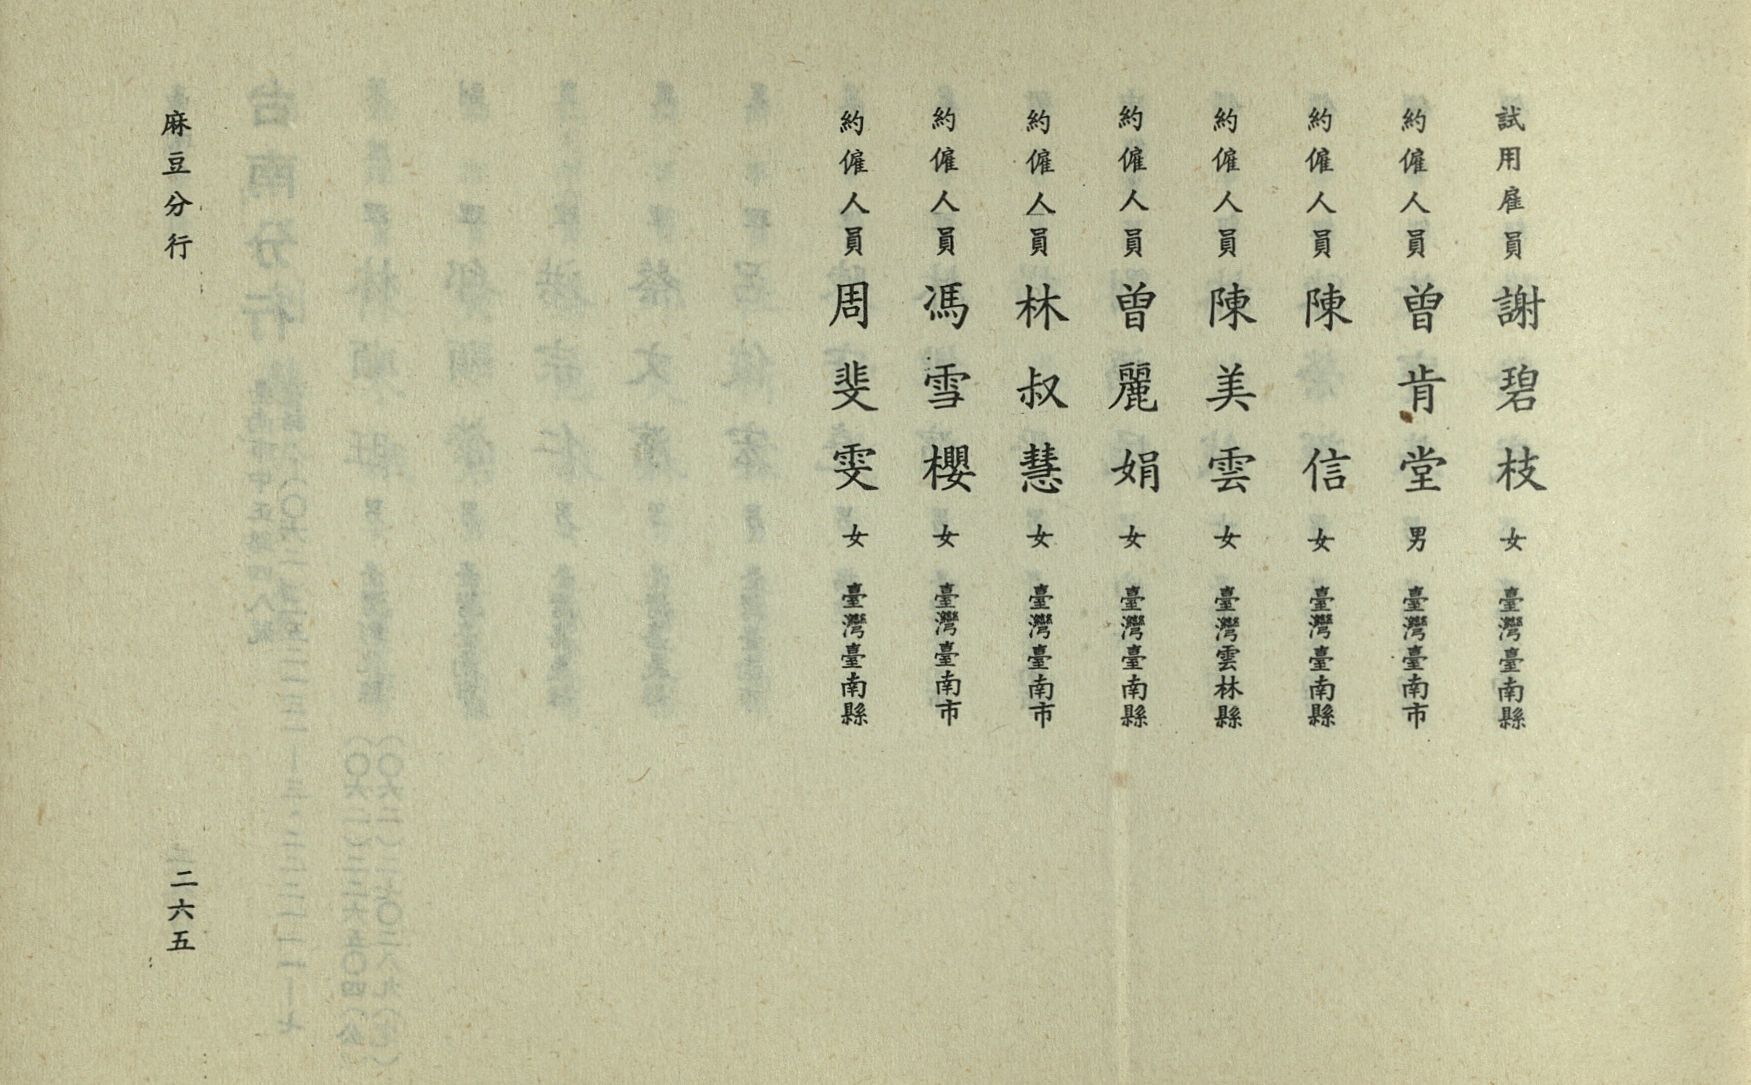 試用雇員 謝碧枝 女 臺灣臺南縣
約僱人員 曾肯堂 男 臺灣臺南市
約僱人員 陳信 女 臺灣臺南縣
約僱人員 陳美雲 女 臺灣雲林縣
約僱人員 曾麗娟 女 臺灣臺南縣
約僱人員 林叔慧 女 臺灣臺南市
約僱人員 馮雪櫻 女 臺灣臺南市
約僱人員 周斐雯 女 臺灣臺南縣
麻豆分行 二六五